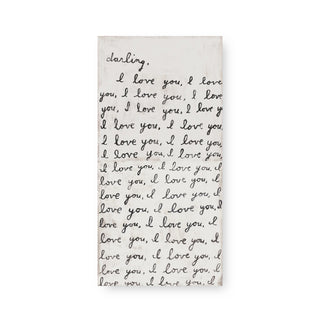 darling,
I love you, I love
you, I love you, I love
you, I love you, I love y
love you, I love you, I
I love you, I love you,
I love you, I love you,
I love you, I love you, I
love you, I love you, I
love you, I love you, I
love you, I love you, I
love you, I love you, I
love you, I love you, I
love you, I love you, I
love you, I love you, I
love you, I love you, I